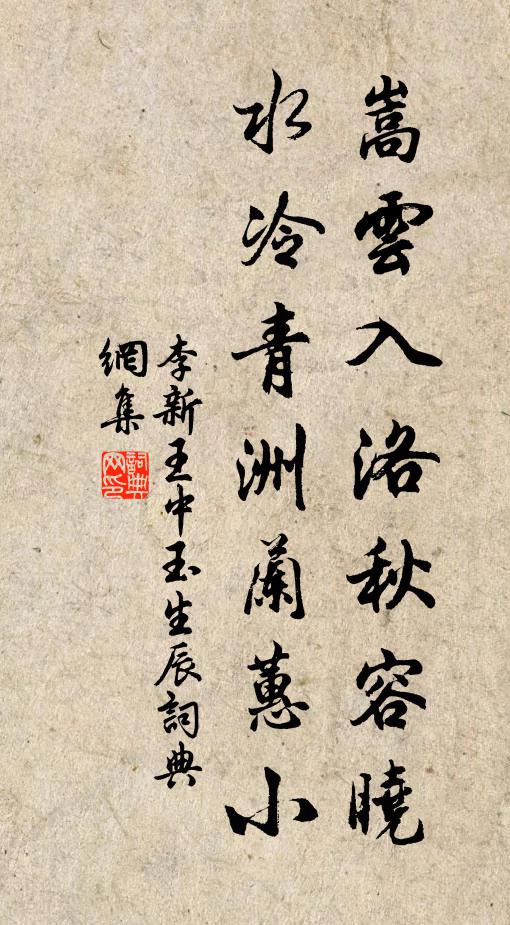 嵩雲入洛秋容曉
水冷青洲蘭蕙小
李新王中玉生辰詞典
網集
詞典
网印